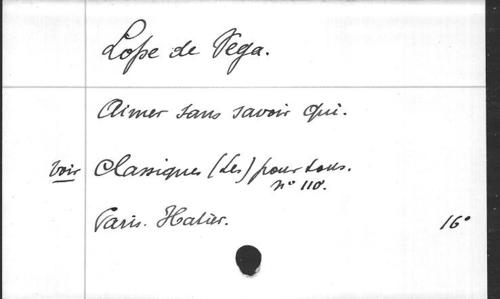 Lope de Vega.
Aimer sans savoir qui.
voir Classiques (Les) pour tous.
n° 110.
Paris. Hatier. 16°